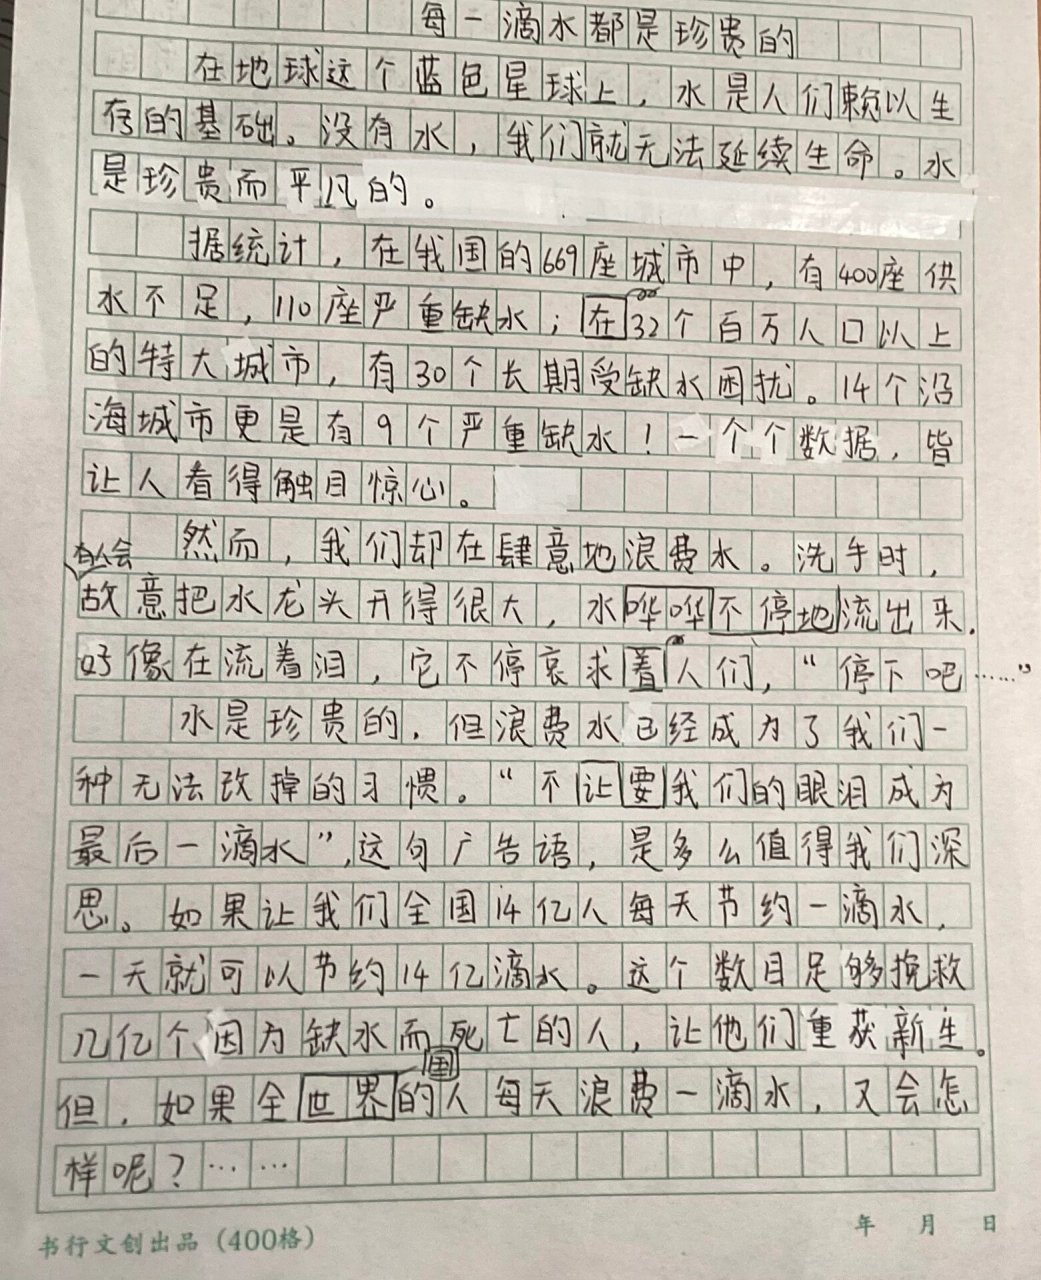 每一滴水都是珍贵的
在地球这个蓝色星球上，水是人们赖以生
存的基础。没有水，我们就无法延续生命。水
是珍贵而平凡的。
据统计，在我国的669座城市中，有400座供
水不足，110座严重缺水；在32个百万人口以上
的特大城市，有30个长期受缺水困扰。14个沿
海城市更是有9个严重缺水！一个个数据，皆
让人看得触目惊心。
然而，我们却在肆意地浪费水。洗手时，
有人会
故意把水龙头开得很大，水哗哗不停地流出来，
好像在流着泪，它不停哀求着人们，“停下吧……”
水是珍贵的，但浪费水已经成为了我们一
种无法改掉的习惯。“不让要我们的眼泪成为
最后一滴水”，这句广告语，是多么值得我们深
思。如果让我们全国14亿人每天节约一滴水，
一天就可以节约14亿滴水。这个数目足够挽救
几亿个因为缺水而死亡的人，让他们重获新生。
国
但，如果全世界的人每天浪费一滴水，又会怎
样呢？……
书行文创出品（400格）
年 月 日